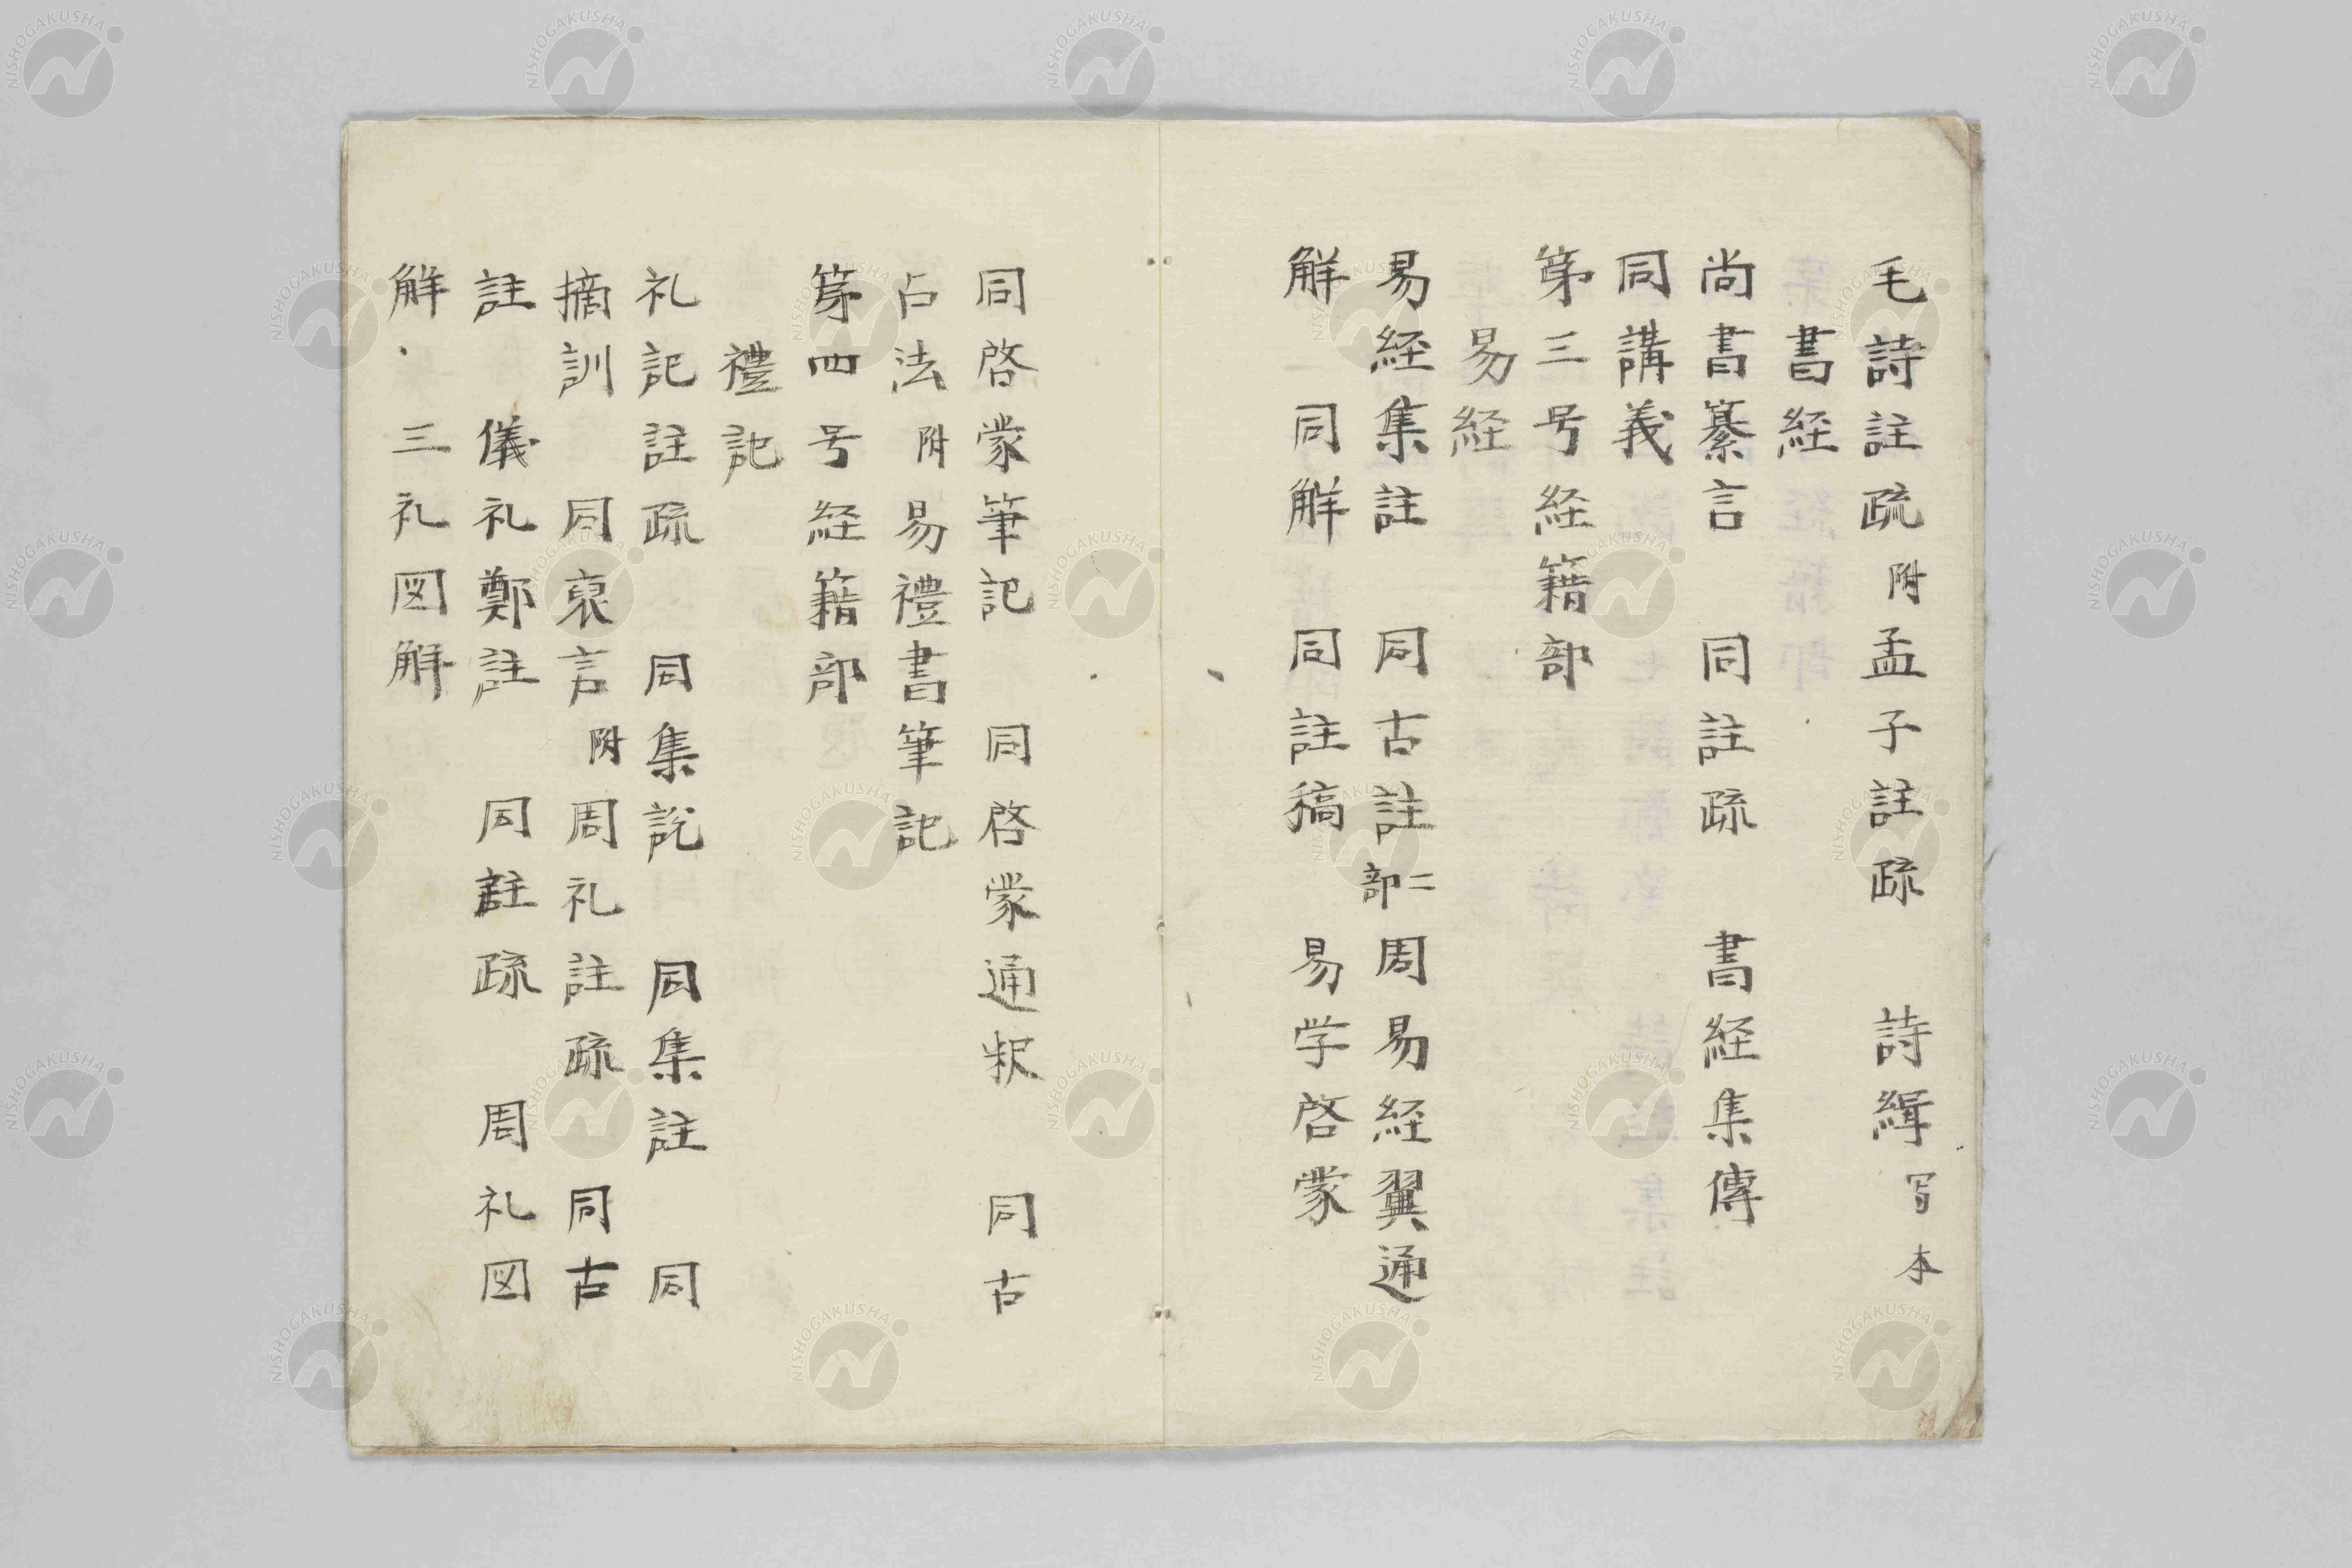 毛詩註疏 附孟子註疏 詩緝写本
書経
尚書纂言 同註疏 書経集傳
同講義
第三号経籍部
易経
易経集註 同古註二部 周易経翼通
解 同解 同註稿 易学啓蒙
同啓蒙筆記 同啓蒙通釈 同古
占法 附易禮書筆記
第四号経籍部
禮記
礼記註疏 同集説 同集註 同
摘訓 同裒言 附周礼註疏 同古
註 儀礼鄭註 同註疏 周礼図
解・三礼図解
NISHOGAKUSHA